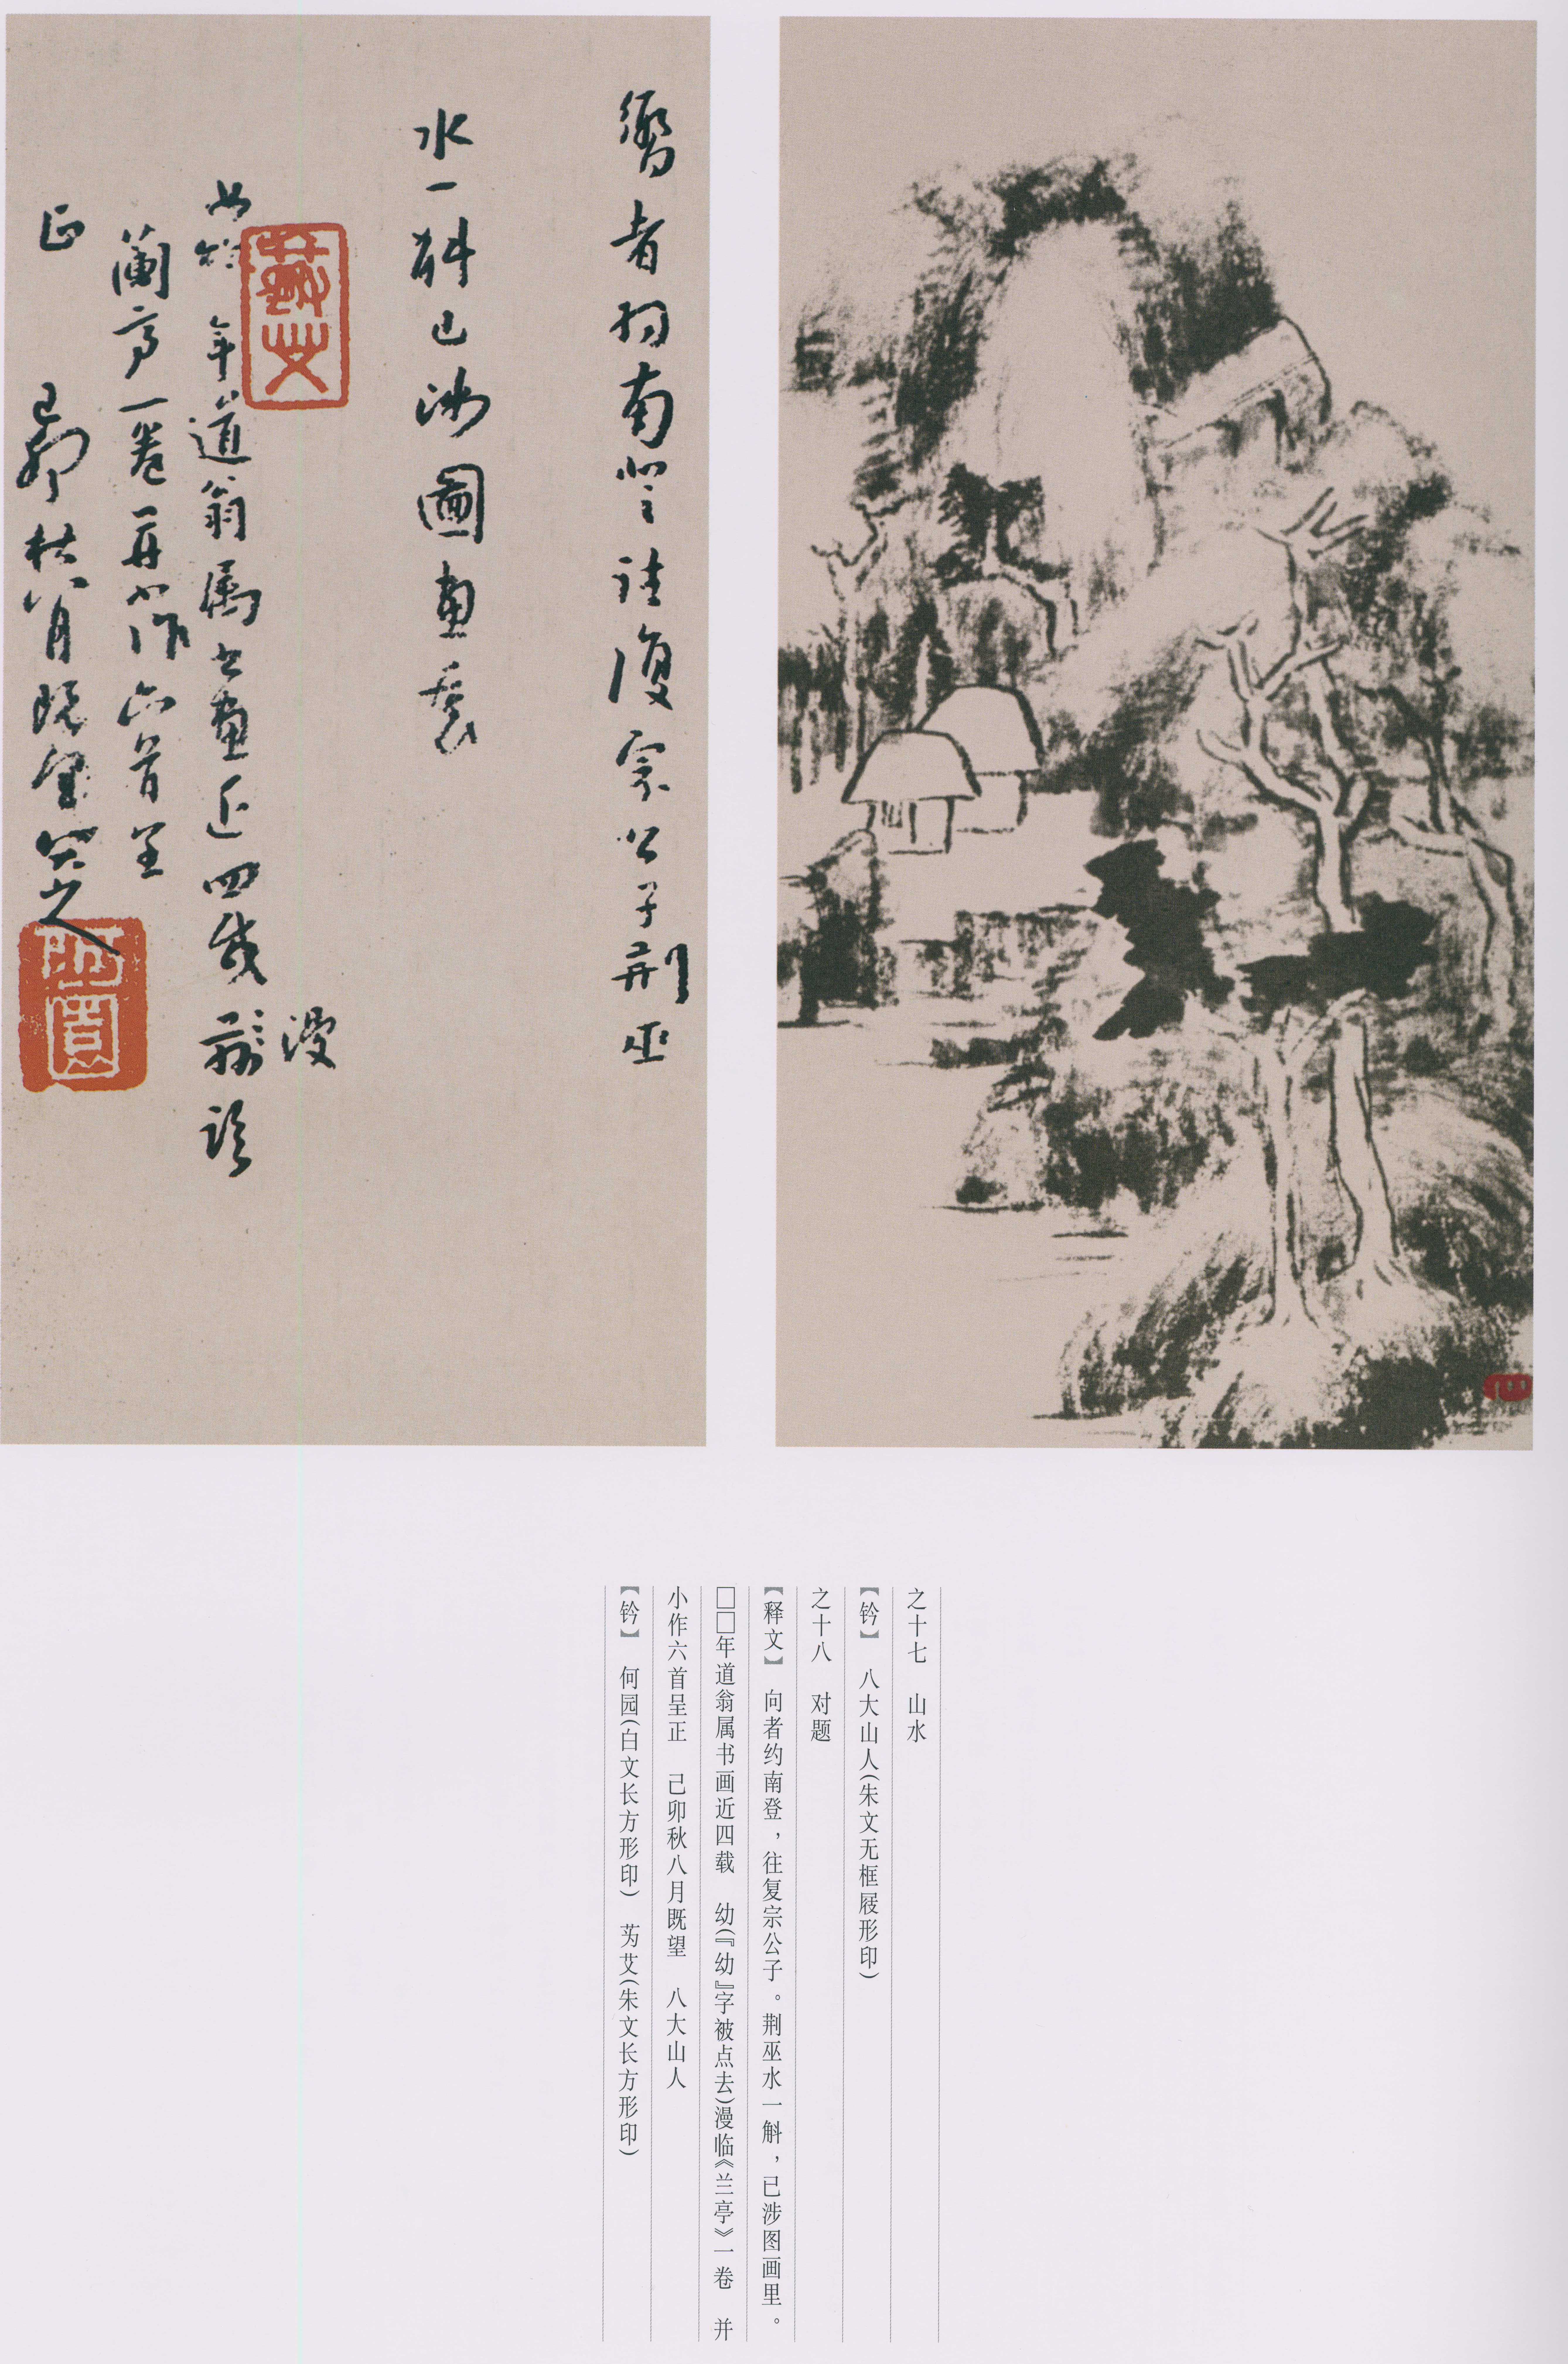 嚮者約南登往復宗公子荊巫
水一斛已涉圖畫裏
年道翁屬書畫近四載
漫
臨
蘭亭一卷并小作六首呈
正
己卯秋八月既望八大山人
之十七 山水
【钤】 八大山人(朱文无框屐形印)
之十八 对题
【释文】 向者约南登，往复宗公子。荆巫水一斛，已涉图画里。
□□年道翁属书画近四载 幼(『幼』字被点去)漫临《兰亭》一卷 并
小作六首呈正 己卯秋八月既望 八大山人
【钤】 何园(白文长方形印) 艻艾(朱文长方形印)